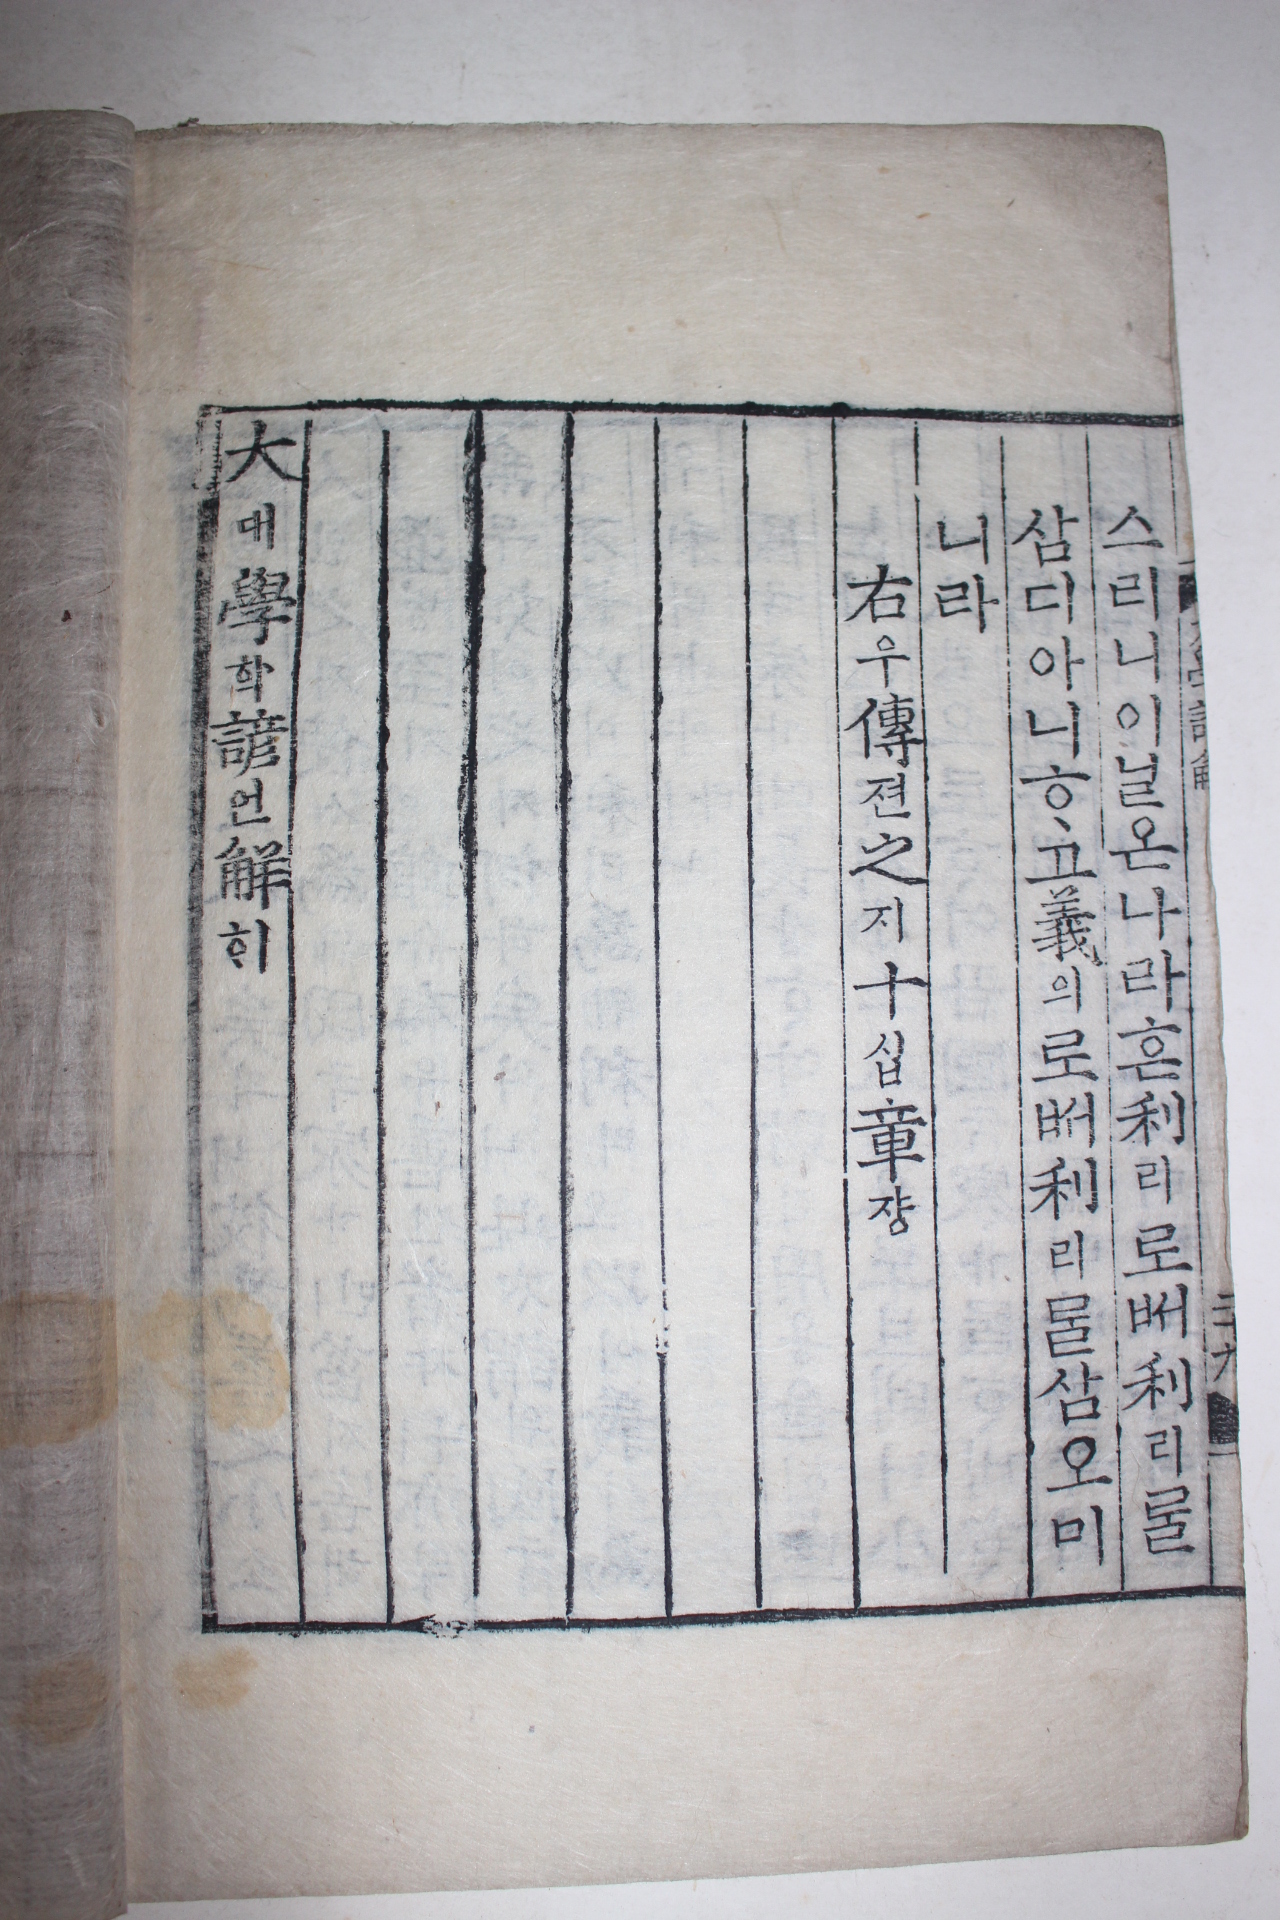 스리니이닐온나라흔利리로뻐利리룰
삼디아니ᄒᆞ고義의로뻐利리룰삼오미
니라
右우傳젼之지十십章쟝
大대學학諺언解ᄒᆡ